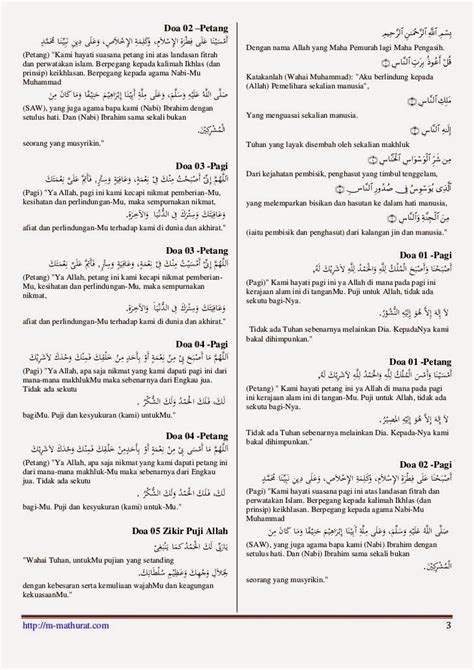 بِسْمِ اللَّهِ الرَّحْمَنِ الرَّحِيمِ
Dengan nama Allah yang Maha Pemurah lagi Maha Pengasih.
قُلْ أَعُوذُ بِرَبِّ النَّاسِ ۝
Katakanlah (Wahai Muhammad): "Aku berlindung kepada
(Allah) Pemelihara sekalian manusia",
مَلِكِ النَّاسِ ۝
Yang menguasai sekalian manusia.
إِلَهِ النَّاسِ ۝
Tuhan yang layak disembah oleh sekalian makhluk
مِن شَرِّ الْوَسْوَاسِ الْخَنَّاسِ ۝
Dari kejahatan pembisik, penghasut yang timbul tenggelam,
الَّذِي يُوَسْوِسُ فِي صُدُورِ النَّاسِ ۝
yang melemparkan bisikan dan hasutan ke dalam hati manusia,
مِنَ الْجِنَّةِ وَالنَّاسِ ۝
(iaitu pembisik dan penghasut) dari kalangan jin dan manusia."
Doa 01 -Pagi
أَصْبَحْنَا وَأَصْبَحَ الْمُلْكُ لِلَّهِ وَالْحَمْدُ لِلَّهِ لاَشَرِيْكَ لَهُ,
(Pagi)" Kami hayati pagi ini ya Allah di mana pada pagi ini
kerajaan alam ini di tanganMu. Puji untuk Allah, tidak ada
sekutu bagi-Nya.
لاَ إِلَهَ إِلاَّ هُوَ إِلَيْهِ النُّشُوْرُ.
Tidak ada Tuhan sebenarnya melainkan Dia. KepadaNya kami
bakal dihimpunkan."
Doa 01 -Petang
أَمْسَيْنَا وَأَمْسَ الْمُلْكُ لِلَّهِ وَالْحَمْدُ لِلَّهِ لاَشَرِيْكَ لَهُ,
(Petang) " Kami hayati petang ini ya Allah di mana pada pagi
ini kerajaan alam ini di tangan-Mu. Puji untuk Allah, tidak ada
sekutu bagi-Nya.
لاَ إِلَهَ إِلاَّ هُوَ إِلَيْهِ الْمَصِيْرُ.
Tidak ada Tuhan sebenarnya melainkan Dia. Kepada-Nya kami
bakal dihimpunkan."
Doa 02 -Pagi
أَصْبَحْنَا عَلَى فِطْرَةِ الإِسْلاَمِ, وَكَلِمَةِ الإِخْلاَصِ, وَعَلَى دِينِ نَبِيِّنَا مُحَمَّدٍ
(Pagi)"Kami hayati suasana pagi ini atas landasan fitrah dan
perwatakan Islam. Berpegang kepada kalimah Ikhlas (dan
prinsip) keikhlasan. Berpegang kepada agama Nabi-Mu
Muhammad
صَلَّى اللَّهُ عَلَيْهِ وَسَلَّمَ, وَعَلَى مِلَّةِ أَبِيْنَا إِبْرَاهِيْمَ حَنِيْفًا وَمَا كَانَ مِنَ
(SAW), yang juga agama bapa kami (Nabi) Ibrahim dengan
setulus hati. Dan (Nabi) Ibrahim sama sekali bukan
الْمُشْرِكِيْنَ.
seorang yang musyrikin."
Doa 02 –Petang
أَمْسَيْنَا عَلَى فِطْرَةِ الإِسْلاَمِ, وَكَلِمَةِ الإِخْلاَصِ, وَعَلَى دِينِ نَبِيِّنَا مُحَمَّدٍ
(Petang) "Kami hayati suasana petang ini atas landasan fitrah
dan perwatakan islam. Berpegang kepada kalimah Ikhlas (dan
prinsip) keikhlasan. Berpegang kepada agama Nabi-Mu
Muhammad
صَلَّى اللَّهُ عَلَيْهِ وَسَلَّمَ, وَعَلَى مِلَّةِ أَبِيْنَا إِبْرَاهِيْمَ حَنِيْفًا وَمَا كَانَ مِنَ
(SAW), yang juga agama bapa kami (Nabi) Ibrahim dengan
setulus hati. Dan (Nabi) Ibrahim sama sekali bukan
الْمُشْرِكِيْنَ.
seorang yang musyrikin."
Doa 03 -Pagi
اللَّهُمَّ إِنِّي أَصْبَحْتُ مِنْكَ فِي نِعْمَةٍ, وَعَافِيَةٍ وَسِتْرٍ, فَأَتِمَّ عَلَيَّ نِعْمَتَكَ
(Pagi) "Ya Allah, pagi ini kami kecapi nikmat pemberian-Mu,
kesihatan dan perlindungan-Mu, maka sempurnakan nikmat,
وَعَافِيَتَكَ وَسِتْرَكَ فِي الدُّنْيَا وَالآخِرَةِ.
afiat dan perlindungan-Mu terhadap kami di dunia dan akhirat."
Doa 03 -Petang
اللَّهُمَّ إِنِّي أَمْسَيْتُ مِنْكَ فِي نِعْمَةٍ, وَعَافِيَةٍ وَسِتْرٍ, فَأَتِمَّ عَلَيَّ نِعْمَتَكَ
(Petang) "Ya Allah, petang ini kami kecapi nikmat pemberian-
Mu, kesihatan dan perlindungan-Mu, maka sempurnakan
nikmat,
وَعَافِيَتَكَ وَسِتْرَكَ فِي الدُّنْيَا وَالآخِرَةِ.
afiat dan perlindungan-Mu terhadap kami di dunia dan akhirat."
Doa 04 -Pagi
اللَّهُمَّ مَا أَصْبَحَ بِيْ مِنْ نِعْمَةٍ أَوْ بِأَحَدٍ مِنْ خَلْقِكَ فَمِنْكَ وَحْدَكَ لاَشَرِيْكَ
(Pagi)"Ya Allah, apa saja nikmat yang kami dapati pagi ini dari
mana-mana makhlukMu maka sebenarnya dari Engkau jua.
Tidak ada sekutu
لَكَ, فَلَكَ الْحَمْدُ وَلَكَ الشُّكْرُ .
bagiMu. Puji dan kesyukuran (kami) untukMu."
Doa 04 -Petang
اللَّهُمَّ مَا أَمْسَى بِيْ مِنْ نِعْمَةٍ أَوْ بِأَحَدٍ مِنْ خَلْقِكَ فَمِنْكَ وَحْدَكَ لاَشَرِيْكَ
(Petang) "Ya Allah, apa saja nikmat yang kami dapati petang ini
dari mana-mana makhluk-Mu maka sebenarnya dari Engkau
jua. Tidak ada sekutu
لَكَ, فَلَكَ الْحَمْدُ وَلَكَ الشُّكْرُ .
bagi-Mu. Puji dan kesyukuran (kami) untuk-Mu."
Doa 05 Zikir Puji Allah
يَارَبِّ لَكَ الْحَمْدُ كَمَا يَنْبَغِيْ
"Wahai Tuhan, untukMu pujian yang setanding
لِجَلاَلِ وَجْهِكَ وَعَظِيْمِ سُلْطَانِكَ.
dengan kebesaran serta kemuliaan wajahMu dan keagungan
kekuasaanMu."
http://m-mathurat.com
3